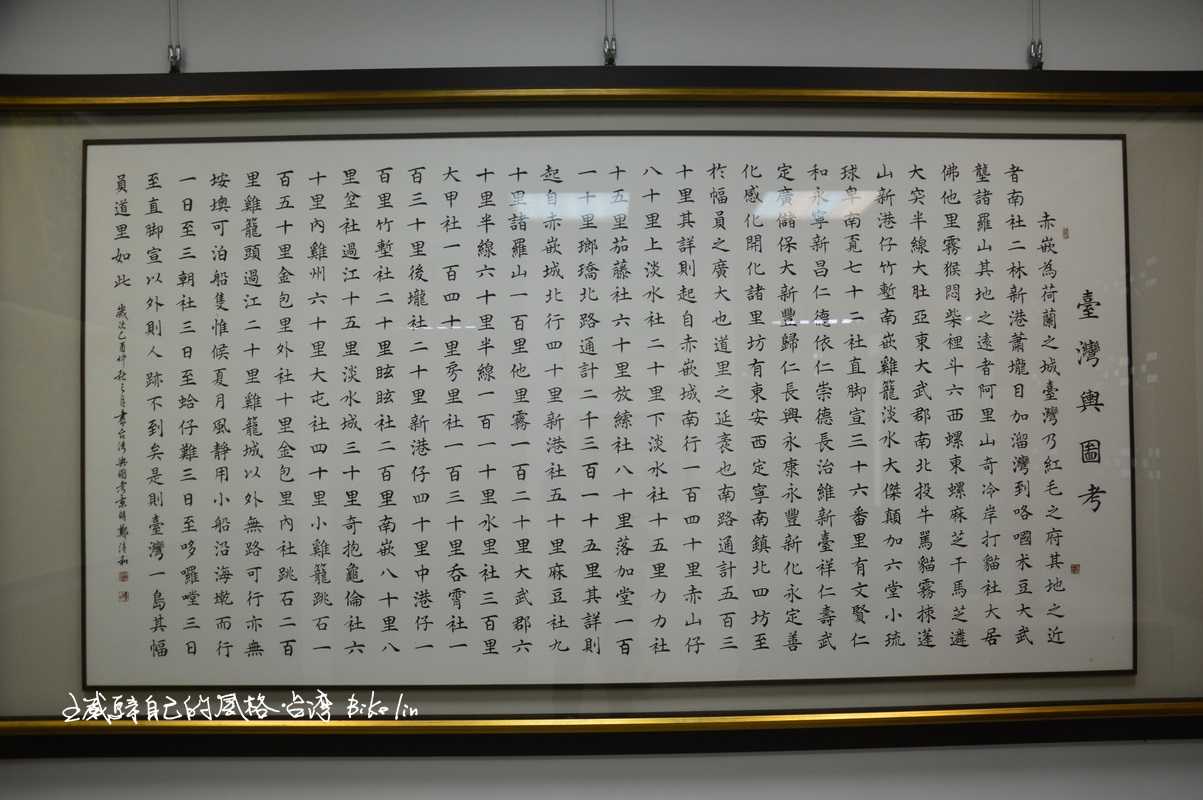 臺灣輿圖考
赤嵌為荷蘭之城臺灣乃紅毛之府其地之近
者南社二林新港蕭壠目加溜灣到咯嘓朮豆大武
壟諸羅山其地之遠者阿里山奇冷岸打貓社大居
佛他里霧猴悶柴裡斗六西螺東螺麻芝干馬芝遴
大突半線大肚亞東大武郡南北投牛罵貓霧捒蓬
山新港仔竹塹南嵌雞籠淡水大傑顛加六堂小琉
球卑南覓七十二社直脚宣三十六番里有文賢仁
和永寧新昌仁德依仁崇德長治維新臺祥仁壽武
定廣儲保大新豐歸仁長興永康永豐新化永定善
化感化開化諸里坊有東安西定寧南鎮北四坊至
於幅員之廣大也道里之延袤也南路通計五百三
十里其詳則起自赤嵌城南行一百四十里赤山仔
八十里上淡水社二十里下淡水社十五里力力社
十五里茄藤社六十里放縤社八十里落加堂一百
一十里瑯璚北路通計二千三百一十五里其詳則
起自赤嵌城北行四十里新港社五十里麻豆社九
十里諸羅山一百里他里霧一百二十里大武郡六
十里半線六十里半線一百一十里水里社三百里
大甲社一百四十里房里社一百三十里吞霄社一
百三十里後壠社二十里新港仔四十里中港仔一
百里竹塹社二十里眩眩社二百里南嵌八十里八
里坌社過江十五里淡水城三十里奇抱龜倫社六
十里內雞州六十里大屯社四十里小雞籠跳石一
百五十里金包里外社十里金包里內社跳石二百
里雞籠頭過江二十里雞籠城以外無路可行亦無
垵墺可泊船隻惟候夏月風靜用小船沿海墘而行
一日至三朝社三日至蛤仔難三日至哆囉嘡三日
至直脚宣以外則人跡不到矣是則臺灣一島其幅
員道里如此
歲次乙酉仲秋之月書台湾輿圖考 鄭清和
自己的風格·台湾 Biko lin